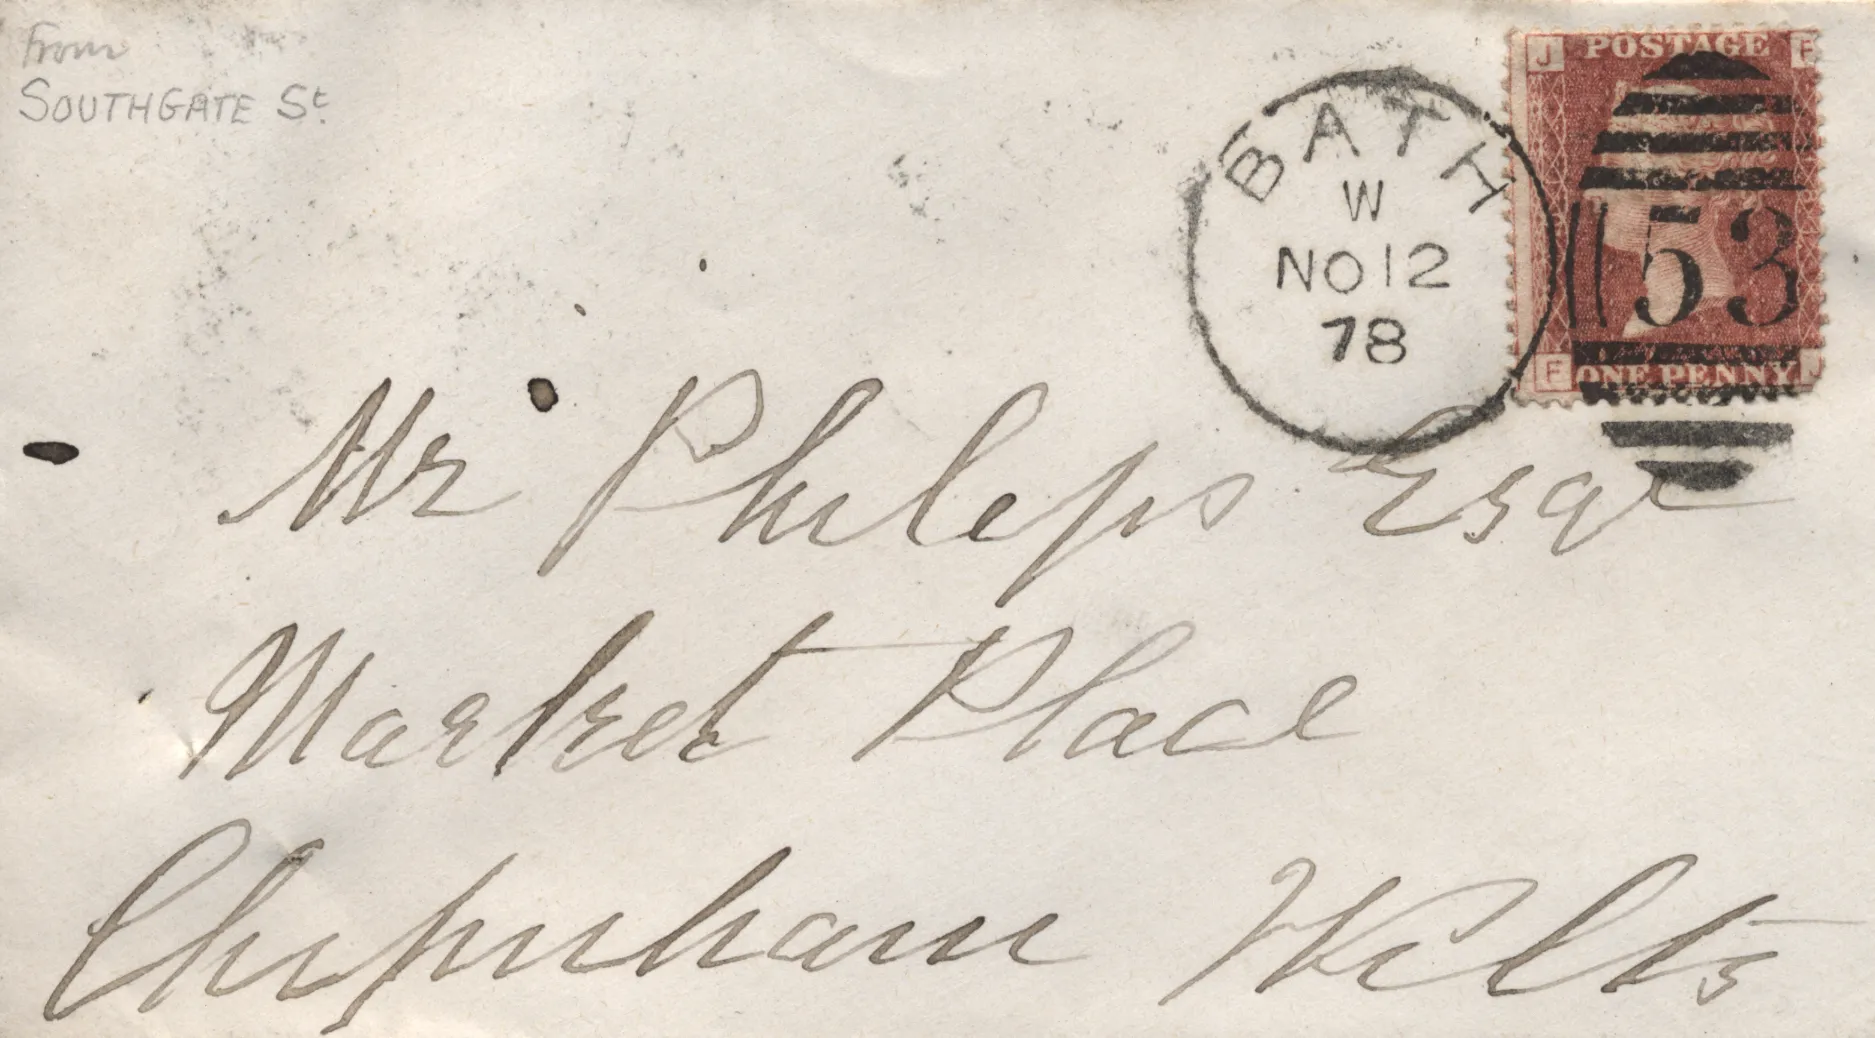 From
SOUTHGATE St.
BATH
W
NO 12
78
J POSTAGE F
53
F ONE PENNY J
Mr Phileps Esqr
Market Place
Chipnham Wilts